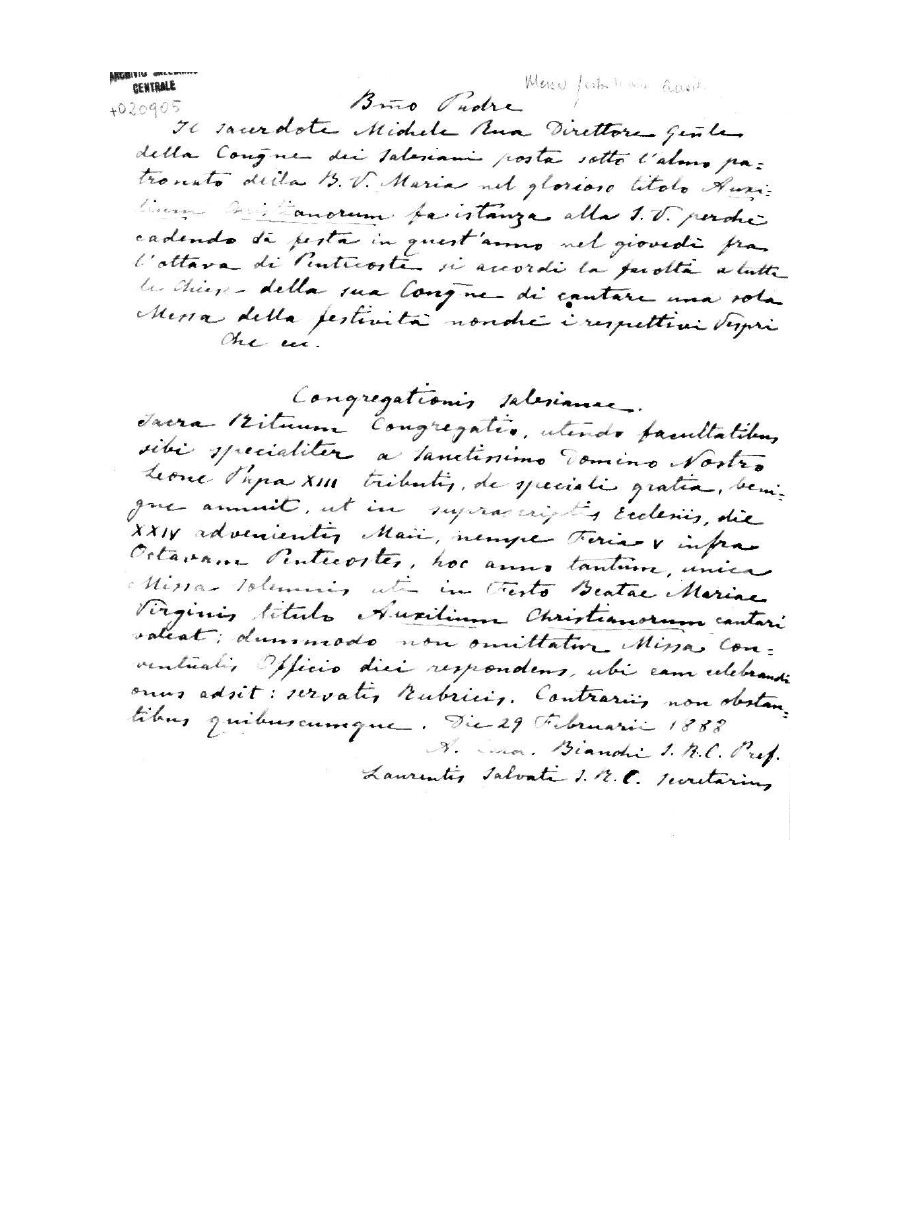 ARCHIVIO SALESIANO
CENTRALE
+020905
Messa festa Maria Ausil
Bm̃o Padre
Il sacerdote Michele Rua Direttore Geñle
della Congñe dei Salesiani posta sotto l'almo pa=
tronato della B. V. Maria nel glorioso titolo Auxi=
lium Christianorum fa istanza alla S. V. perchè
cadendo la festa in quest'anno nel giovedì fra
l'ottava di Pentecoste si accordi la facoltà a tutte
le Chiese della sua Congñe di cantare una sola
Messa della festività nonchè i respettivi Vespri
Che ec.
Congregationis Salesianae.
Sacra Rituum Congregatio, utendo facultatibus
sibi specialiter a Sanctissimo Domino Nostro
Leone Papa XIII tributis, de speciali gratia, beni=
gne annuit, ut in suprascriptis Ecclesiis, die
XXIV advenientis Maii, nempe Feria V infra
Octavam Pentecostes, hoc anno tantum, unica
Missa Solemnis uti in Festo Beatae Mariae
Virginis titulo Auxilium Christianorum cantari
valeat: dummodo non omittatur Missa Con=
ventualis Officio diei respondens, ubi eam celebrandi
onus adsit: servatis Rubricis. Contrariis non obstan=
tibus quibuscumque. Die 29 Februarii 1888
A. Bianchi S. R. C. Pref.
Laurentis Salvati S. R. C. Secretarius